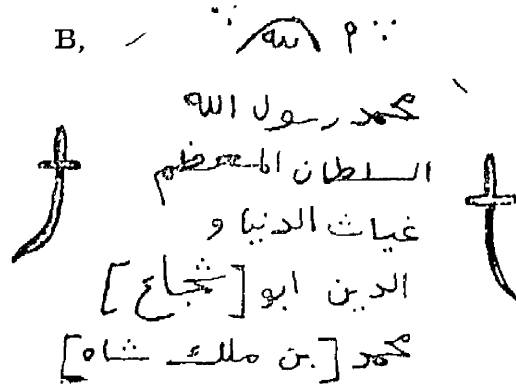 B,
لله م
محمد رسول الله
السلطان المعظم
غياث الدنيا و
الدين ابو [شجاع]
محمد [بن ملك شاه]